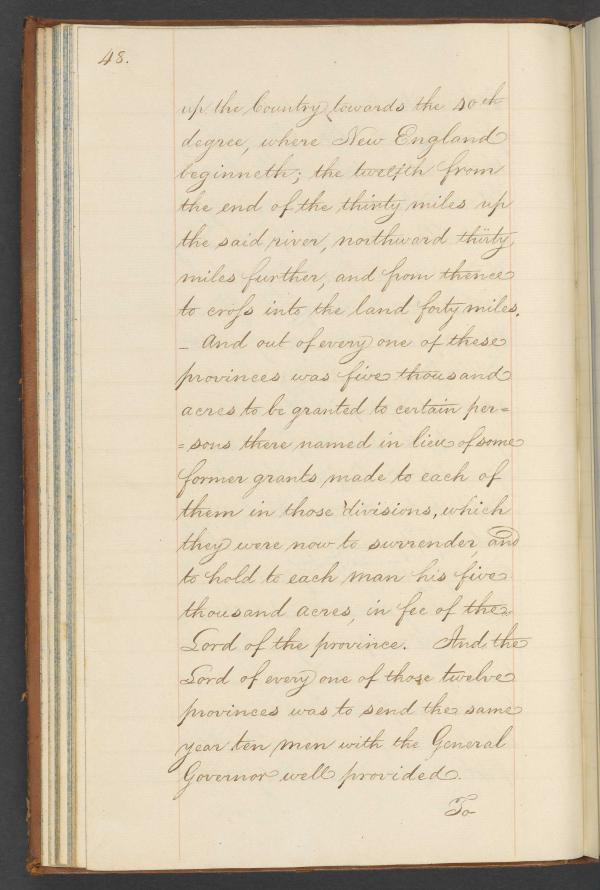 48.
up the Country towards the 40th
degree, where New England
beginneth; the twelfth from
the end of the thirty miles up
the said river, northward thirty
miles further, and from thence
to croſs into the land forty miles.
– And out of every one of these
provinces was five thousand
acres to be granted to certain per=
=sons there named in lieu of some
former grants made to each of
them in those divisions, which
they were now to surrender, and
to hold to each man his five
thousand acres, in fee of the
Lord of the province. And the
Lord of every one of those twelve
provinces was to send the same
year ten men with the General
Governor well provided.
To